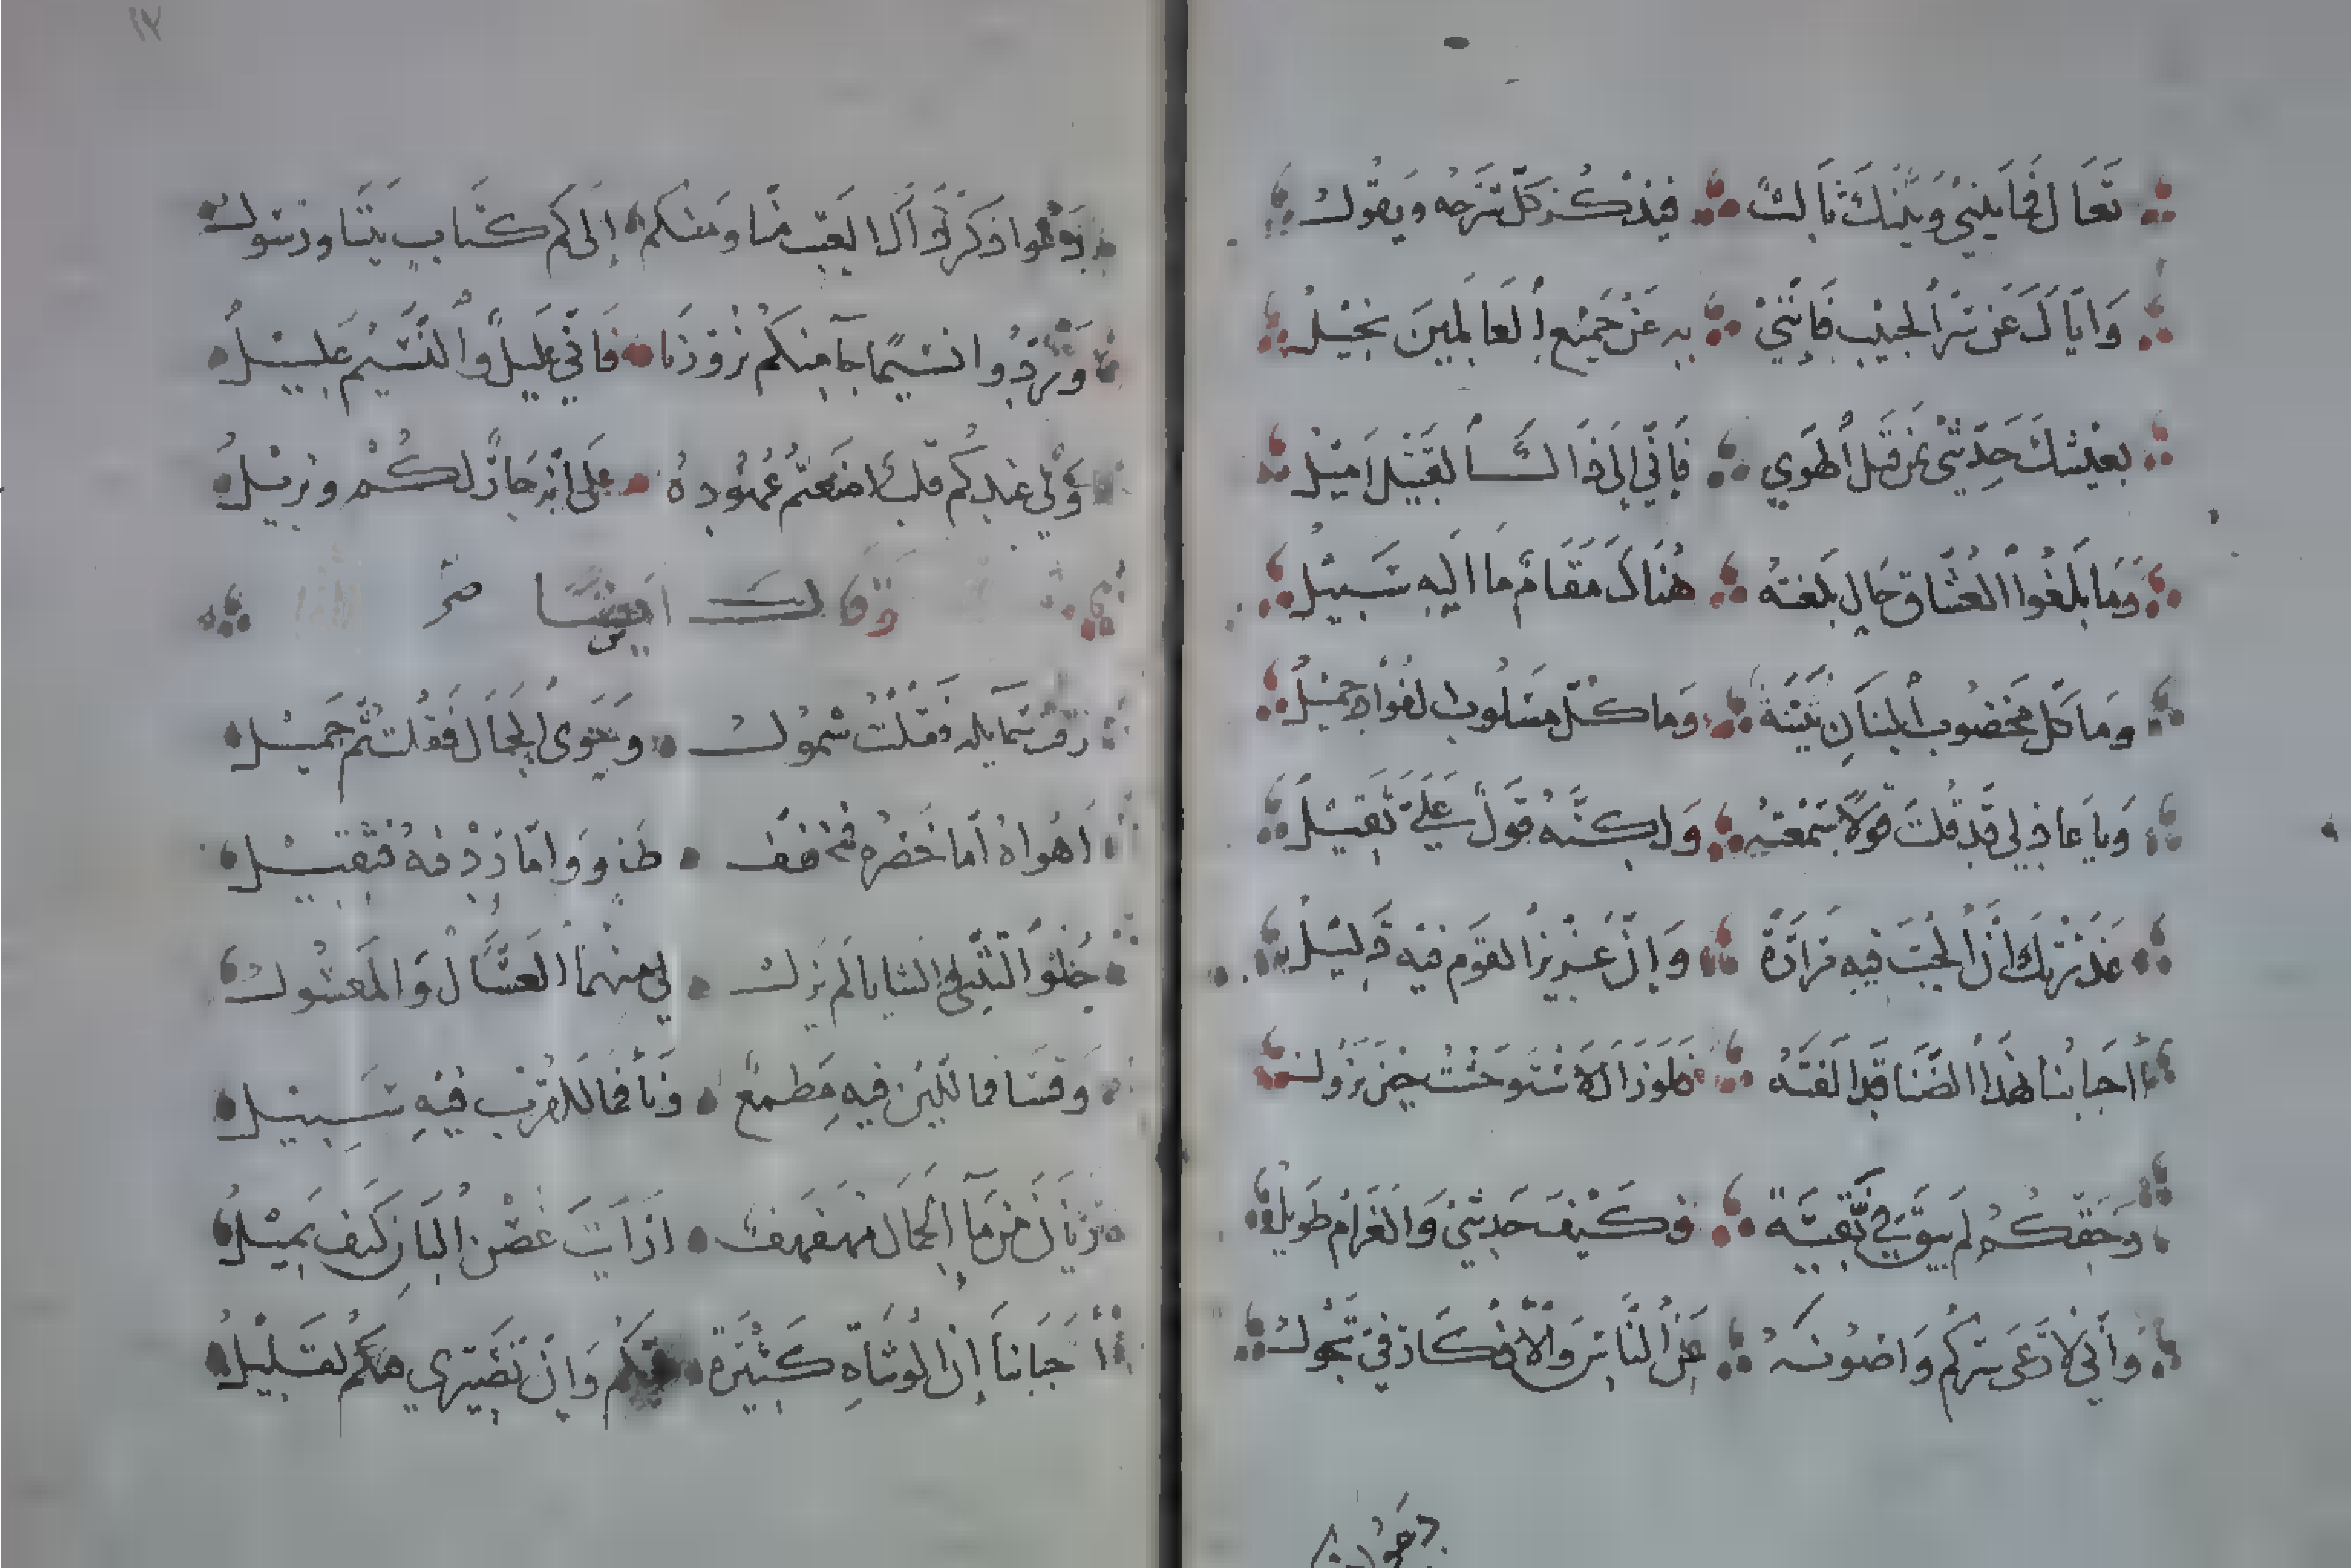 تَعَال فَمَا بَيْنِي وَبَيْنَكَ ثَالِثٌ فَيَذْكُرَ كُلٌّ شَرْحَهُ وَيَقُولُ
وَايَّاكَ عَن سِرّ الحَبيب فَإِنَّنِي بِهِ عَنْ جَمِيْعِ العَالَمِينَ بَخِيْلُ
بعَيْشِكَ حَدِّثْنِي بمَن قَتَل الهَوي فَإنّي إِلَى ذَاكَ القَتِيْل اَمِيْلُ
وَمَا بَلَغُوا العُشَّاق حَالٍ بَلَغتهُ هُنَاكَ مَقَامٌ مَا اليهِ سَبيْلُ
ومَا كُلّ مَخضُوب البَنَانِ بُثَيْنَة وَما كُلّ مَسْلُوب الفُوَادِ جَمِيْلُ
وَيَا عَاذِلِي قَد قُلتَ قَولاً سَمِعْتهُ وَلكِنَّهُ قَولٌ عَلَيَّ ثَقِيْلُ
عَذَرْتكَ انَّ الحُبّ فِيهِ مَرَارَةٌ وَإنّ عَزيز القَوم فيْهِ ذَلِيْلُ
أاحبَابنَا هَذا الضَّنَا قَد الفتهُ فَلَو زَالَ لاَسْتَوحَشْتُ حِيْنَ يَزُولُ
وَحَقّكُم لَم يبقَ فِيَّ بَقيَّةٌ فَكَيْفَ حَدِيْثِي وَالغَرَامُ طَوِيلُ
وَأنّي لَارعَى سِرّكُم وَاصُونهُ عَن النَّاسِ وَالأفْكَار فِيّ تَجُولُ
دَعُوا ذكر ذَاكَ العَتب منَّا ومنكم إِلَى كَم كتَابٍ بَيْنَنا ورَسُولُ
وَرُدُّوا نَسِيْمًا جَآ منكُم يَزُورُنَا فَانّي عَلِيلٌ وَالنَّسِيْمُ عَلِيْلُ
وَلي عندكُم قَلبٌ اضَعتُم عُهُودهُ عَلَى انَّه جَارٌ لكُم ونزيْلُ
وَقَالَ ايضًا
رَقَّتْ شَمَايله فَقُلْتُ شَمُولُ وَحَوَى الجمَالَ فَقُلْتُ ثمّ جَمِيْلُ
اَهْوَاهُ أمّا خَصْرُهُ فَمُخَفّفٌ طَاوٍ وَامَّا رِدْفهُ فثَقيْلُ
حُلوُ التَّثَنِّي والثَّنايا لَم يَزَل لِي مِنْهُمَا العَسَّالُ وَالمَعسُولُ
وَقَسَا فما للّيْن فيهِ مَطمَعٌ وَنَأى فما للقُرْب فيْهِ سَبيْلُ
رَيَّانُ من مَآ الجَمَال مُهَفهَفٌ ارَاَيتَ غُصْنَ البَانِ كَيفَ يَمِيْلُ
أأحبَابنَا إنّ الوُشَاةِ كَثيْرَةٌ فيكُم وَإنّ تَصَبُّري عنكُم لقَلِيْلُ